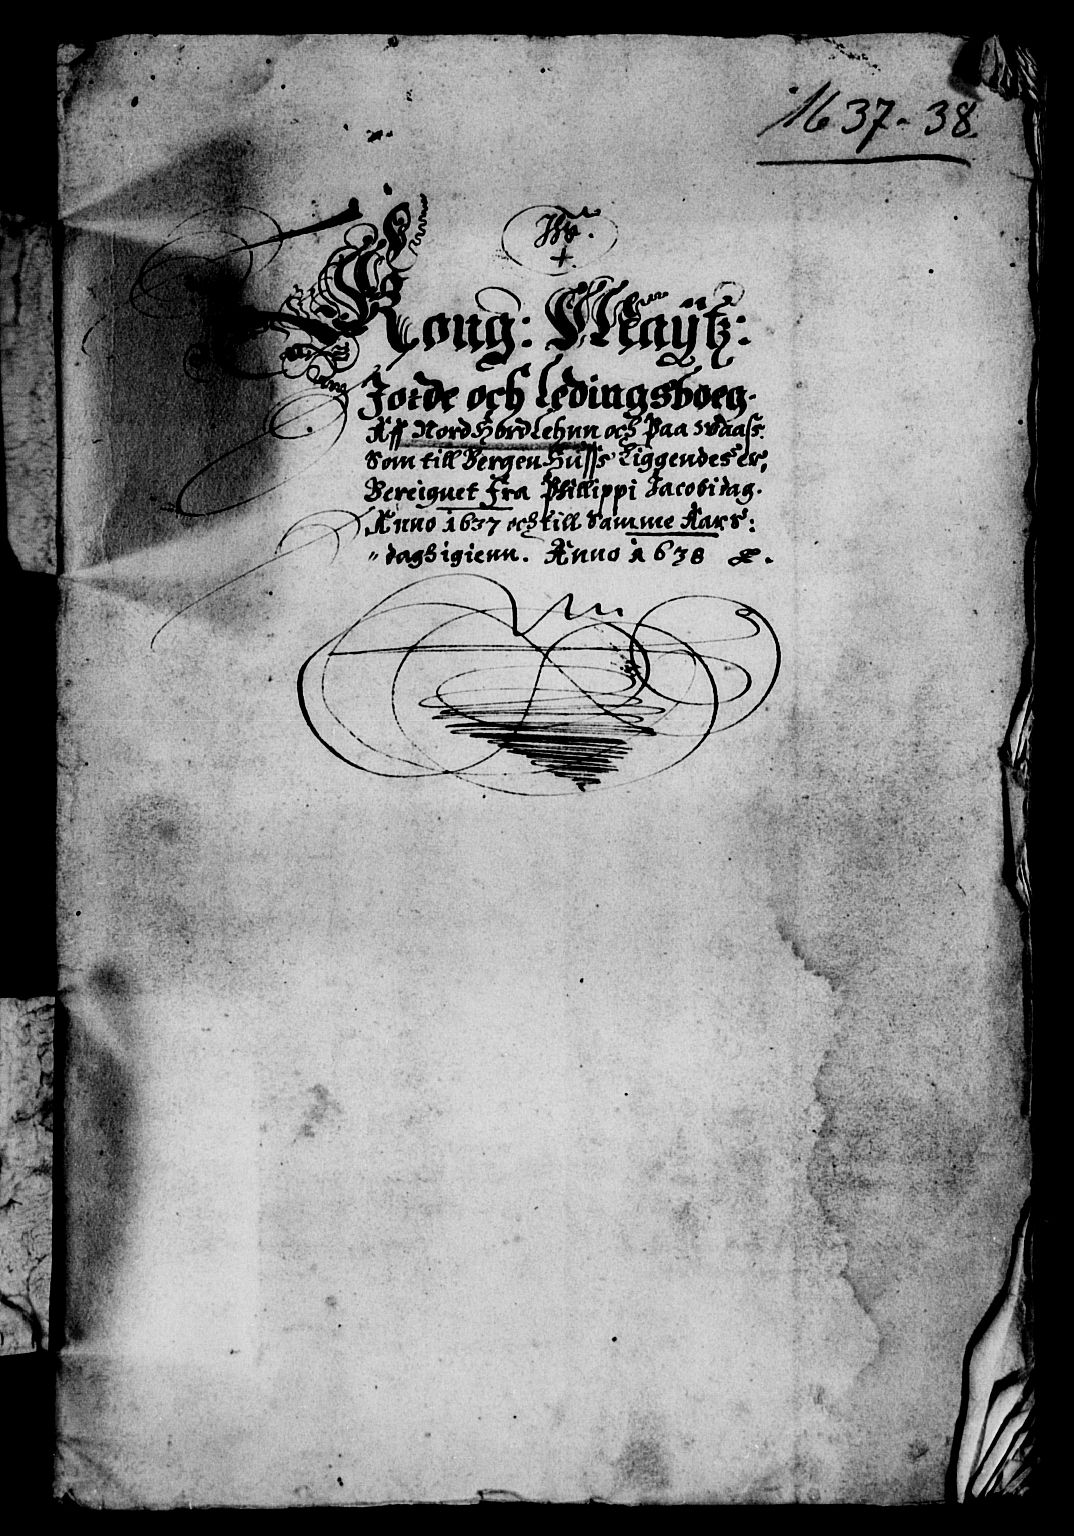 1637-38.
Kong: Maÿtz:
Jorde och Ledingsboeg.
Aff Nord Hordlehnn och paa Waass.
Som till Bergen Huss Liggendes er,
Bereignet Fra Phillippi Jacobi dag.
Anno 1637 och till Samme Aars:
" dags igienn. Anno 1638 &.